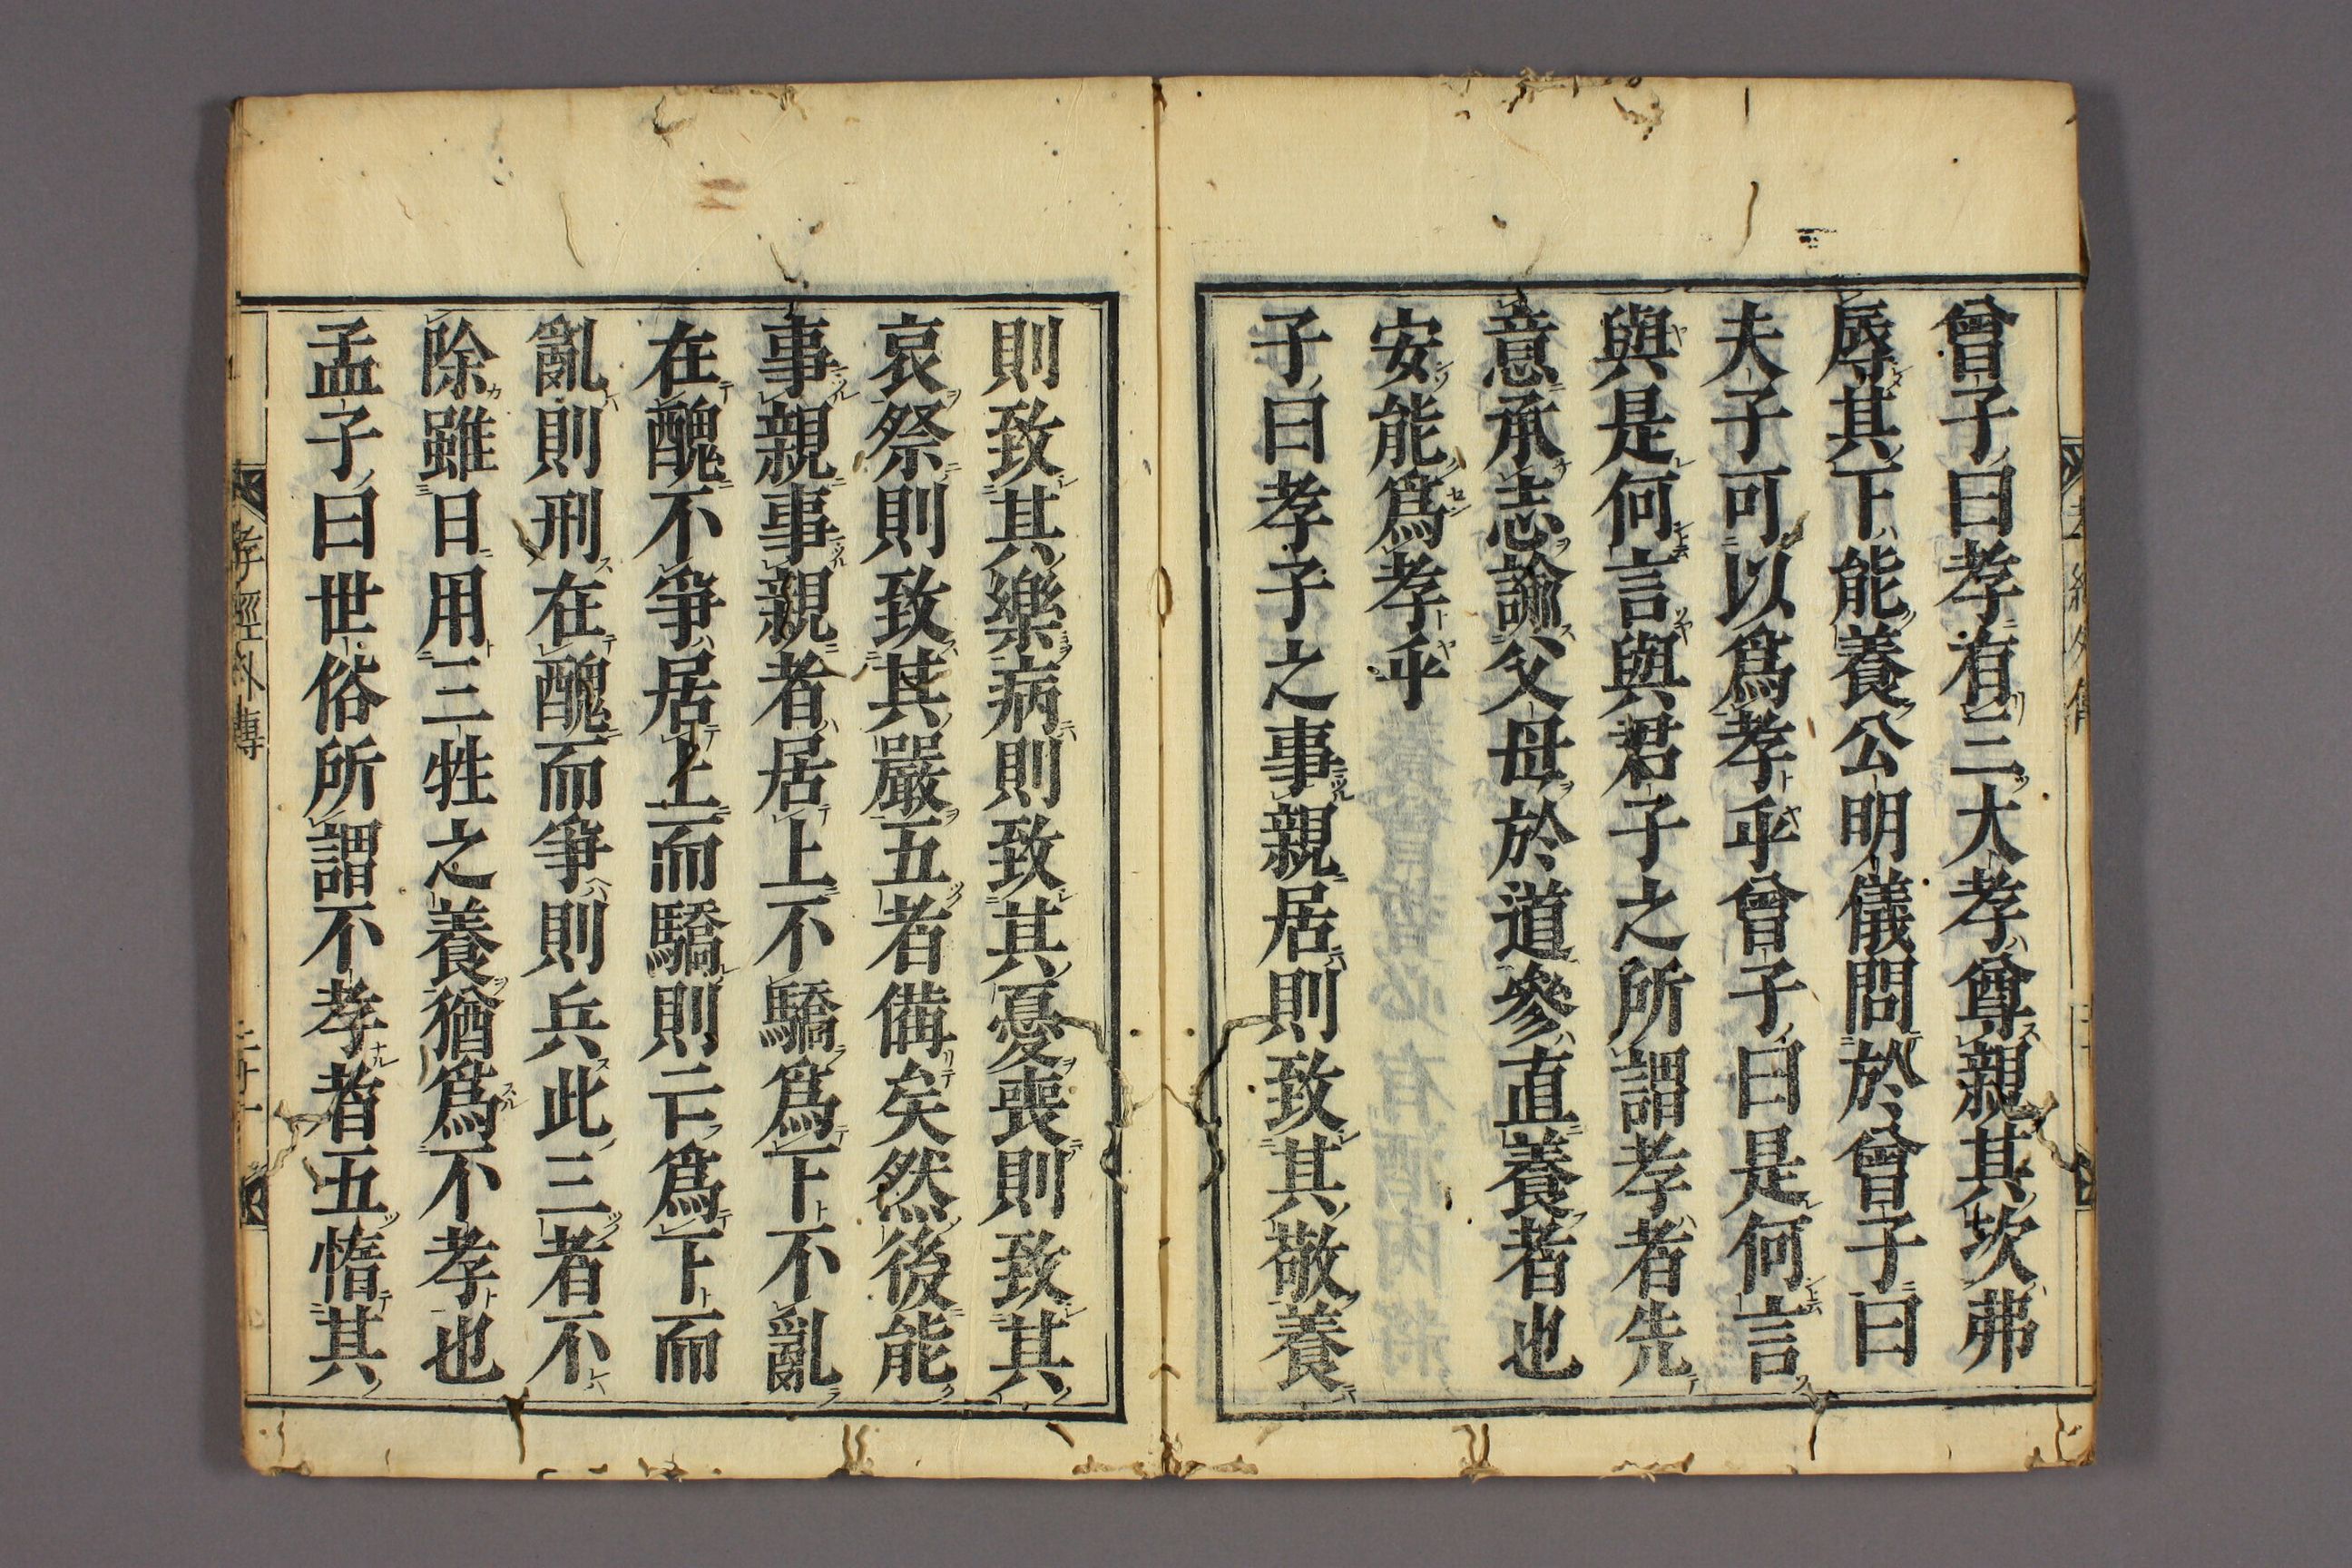 曾子曰孝有三大孝尊親其次弗
辱其下能養公明儀問於曾子曰
夫子可以爲孝乎曾子曰是何言
與是何言與君子之所謂孝者先
意承志諭父母於道參直養者也
安能爲孝乎
子曰孝子之事親居則致其敬養
則致其樂病則致其憂喪則致其
哀祭則致其嚴五者備矣然後能
事親事親者居上不驕爲下不亂
在醜不爭居上而驕則亡爲下而
亂則刑在醜而爭則兵此三者不
除雖日用三牲之養猶爲不孝也
孟子曰世俗所謂不孝者五惰其
孝經外傳